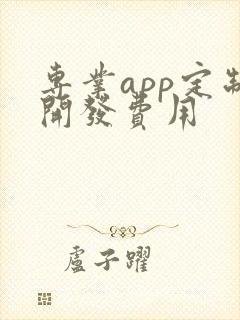 專業app定制
開發費用
盧子躍